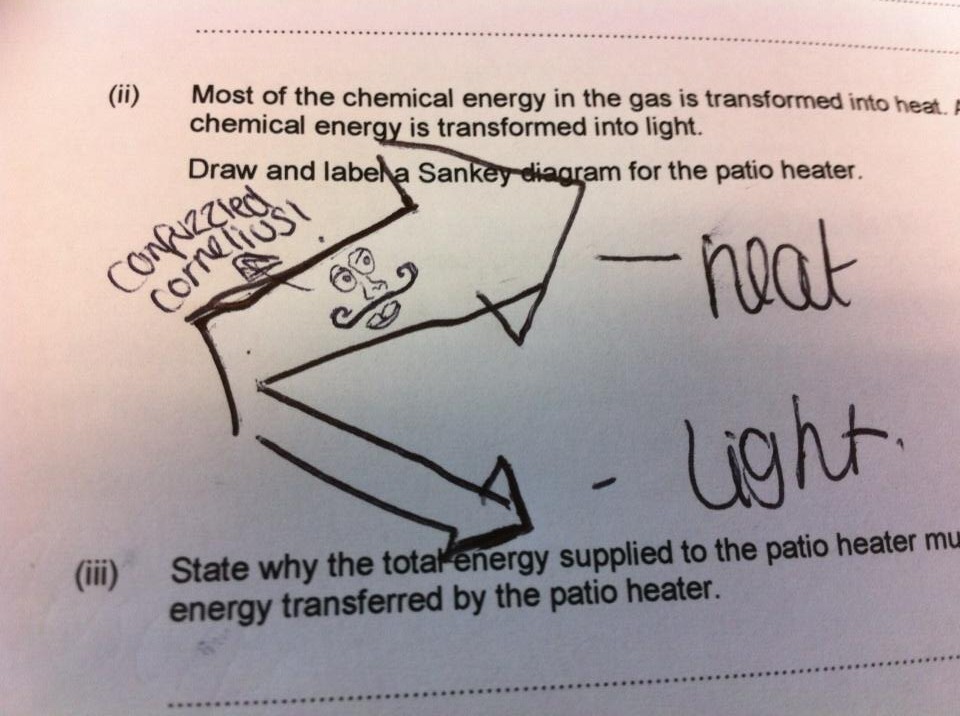 (ii) Most of the chemical energy in the gas is transformed into heat.
chemical energy is transformed into light.
Draw and label a Sankey diagram for the patio heater.
confuzzled
cornelius!
- heat
- Light.
(iii) State why the total energy supplied to the patio heater
energy transferred by the patio heater.